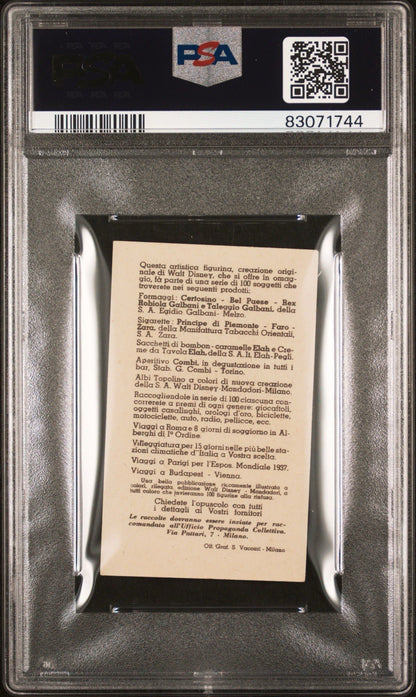 PSA
83071744
Questa artistica figurina, creazione origi-
nale di Walt Disney, che si offre in omag-
gio, fà parte di una serie di 100 soggetti che
troverete nei seguenti prodotti:
Formaggi: Certosino - Bel Paese - Rex
Robiola Galbani e Taleggio Galbani, della
S. A. Egidio Galbani - Melzo.
Sigarette: Principe di Piemonte - Faro -
Zara, della Manifattura Tabacchi Orientali,
S. A. Zara.
Sacchetti di bombon - caramelle Elah e Cre-
me da Tavola Elah, della S. A. It. Elah-Pegli.
Aperitivo Combi, in degustazione in tutti i
bar, Stab. G. Combi - Torino.
Albi Topolino a colori di nuova creazione
della S. A. Walt Disney-Mondadori-Milano.
Raccogliendole in serie di 100 ciascuna con-
correrete a premi di ogni genere: giocattoli,
oggetti casalinghi, orologi d'oro, biciclette,
motociclette, auto, radio, pellicce, ecc.
Viaggi a Roma e 8 giorni di soggiorno in Al-
berghi di 1° Ordine.
Villeggiatura per 15 giorni nelle più belle sta-
zioni climatiche d'Italia a Vostra scelta.
Viaggi a Parigi per l'Espos. Mondiale 1937.
Viaggi a Budapest - Vienna.
Una bella pubblicazione riccamente illustrata a
colori, rilegata, edizione Walt Disney - Mondadori, a
tutti coloro che invieranno 100 figurine alla rinfusa.
Chiedete l'opuscolo con tutti
i dettagli ai Vostri fornitori
Le raccolte dovranno essere inviate per rac-
comandata all'Ufficio Propaganda Collettiva.
Via Pattari, 7 - Milano.
Off. Graf. S. Vacconi - Milano